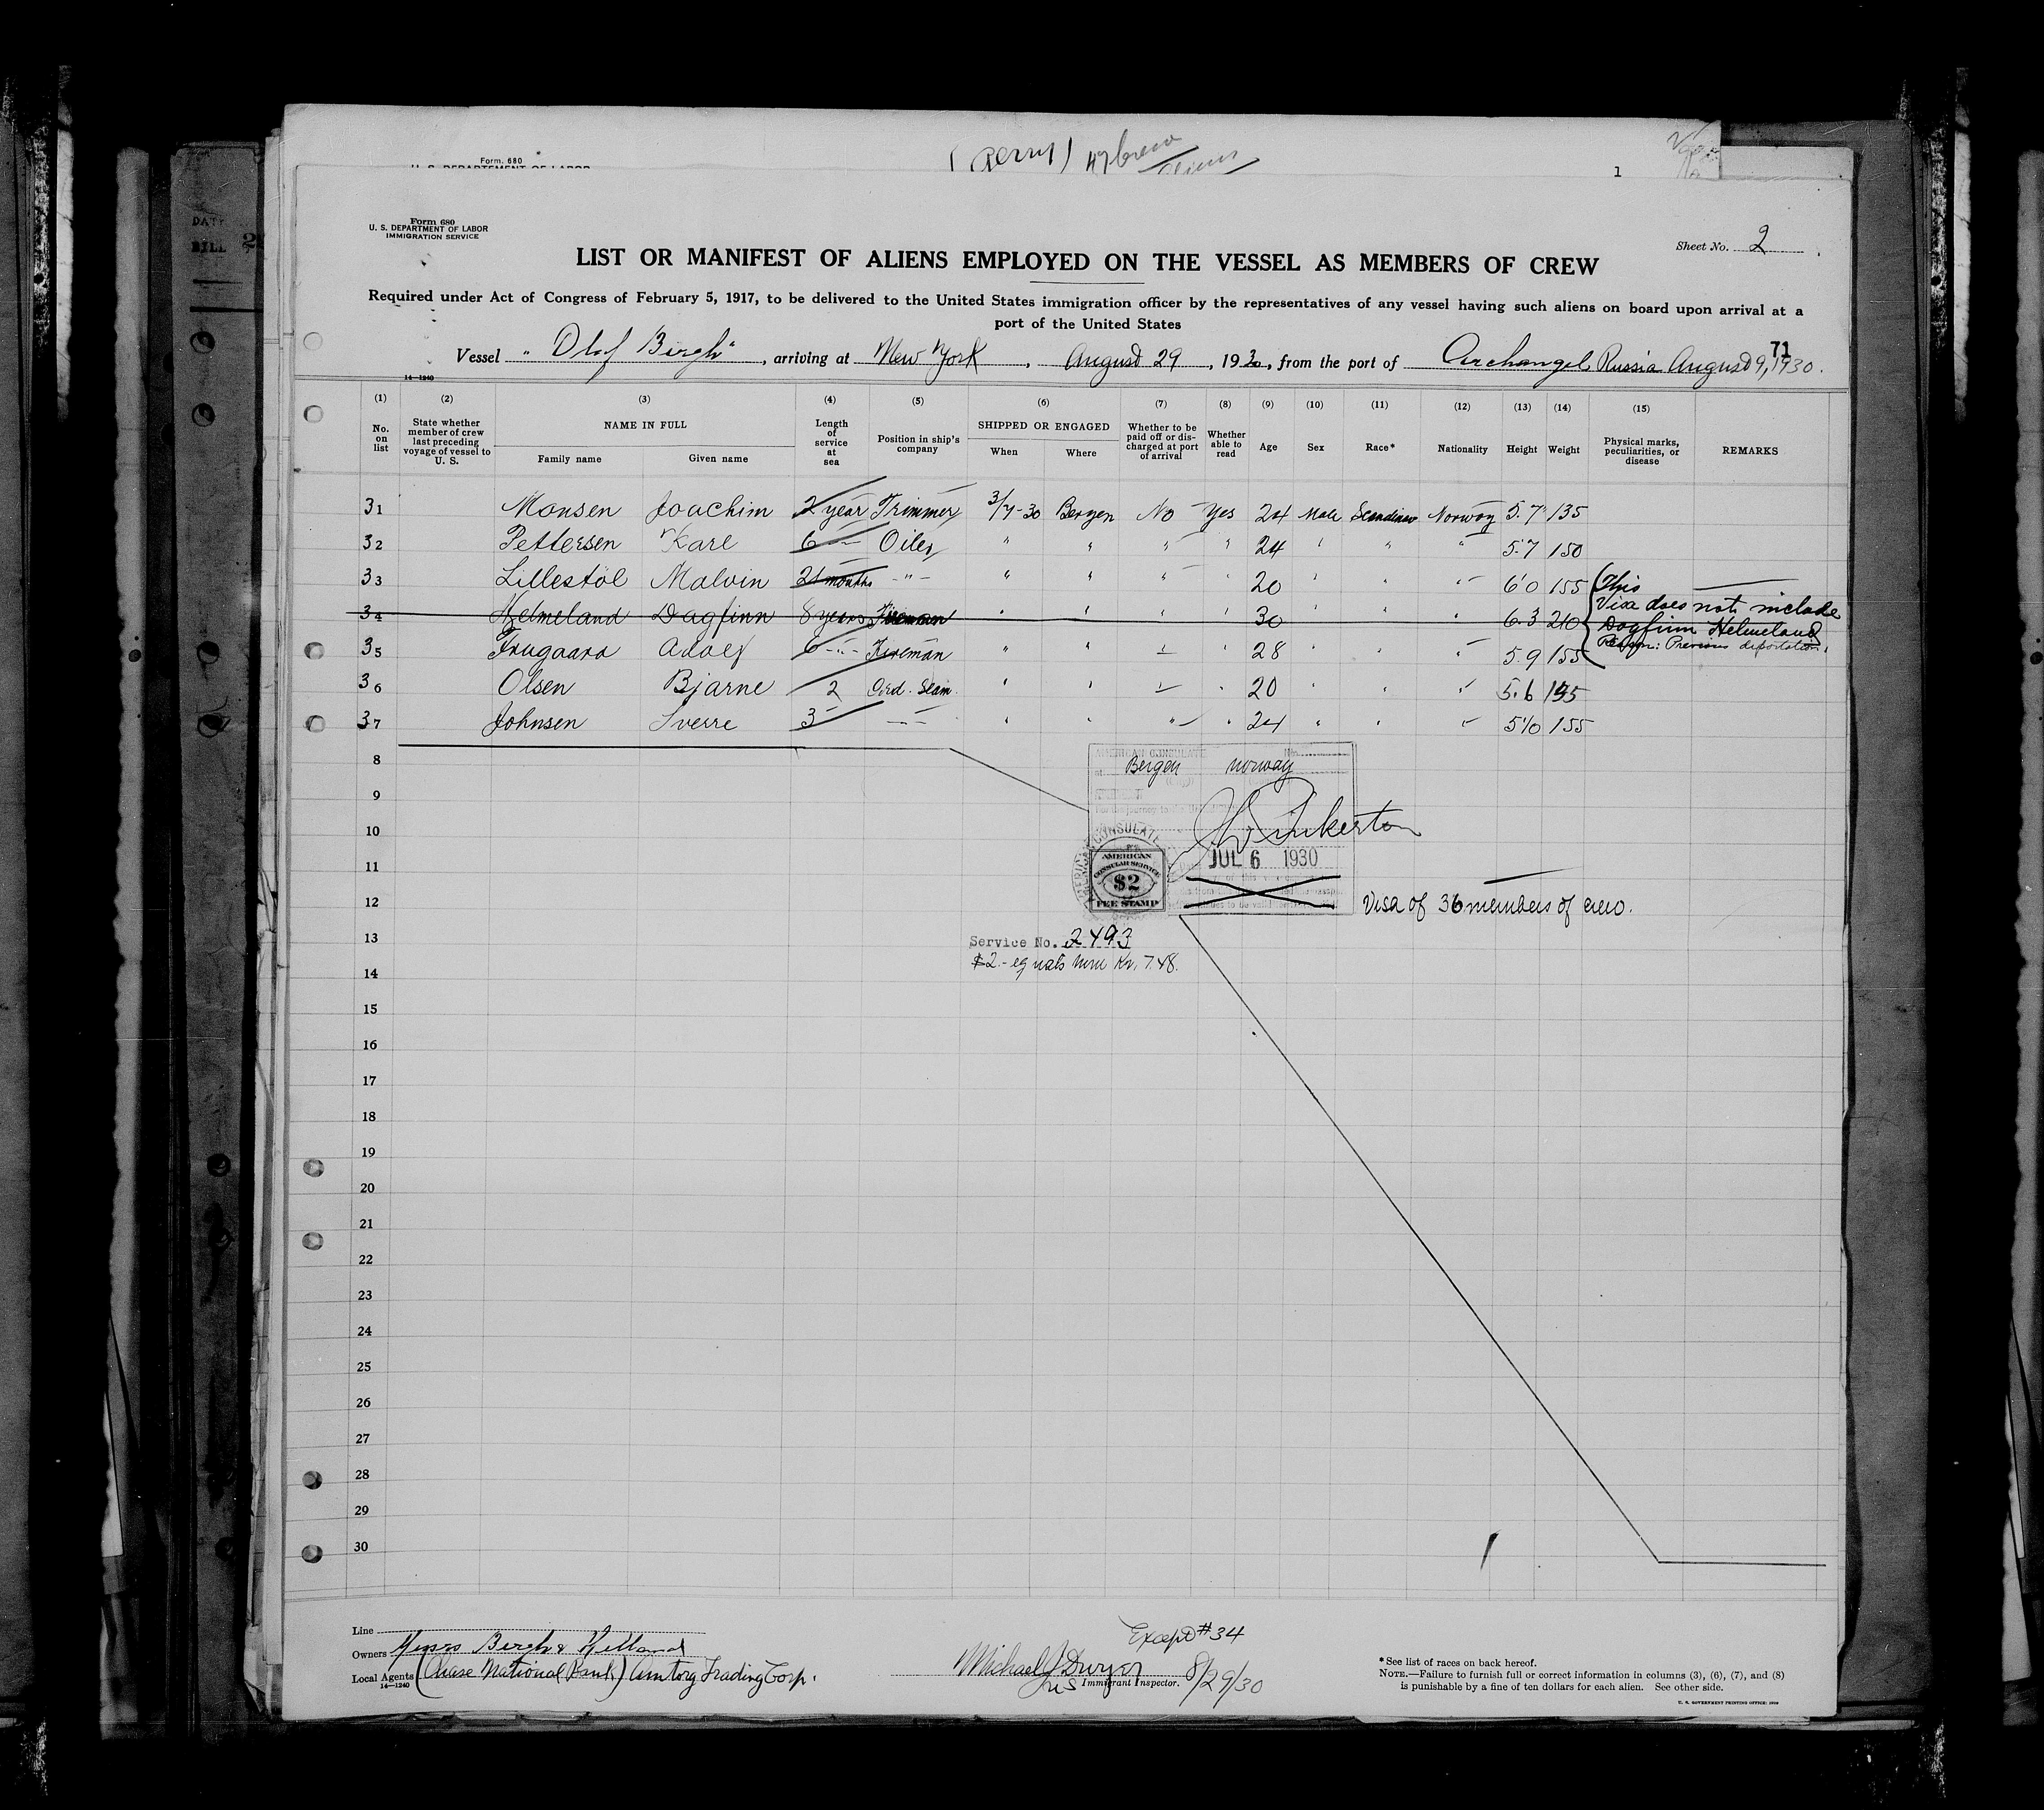 Form. 680
U. S. DEPARTMENT OF LABOR
47 Crew
1
Form 680
U. S. DEPARTMENT OF LABOR
IMMIGRATION SERVICE
Sheet No. 2
LIST OR MANIFEST OF ALIENS EMPLOYED ON THE VESSEL AS MEMBERS OF CREW
Required under Act of Congress of February 5, 1917, to be delivered to the United States immigration officer by the representatives of any vessel having such aliens on board upon arrival at a
port of the United States
71
Vessel "Olaf Bergh", arriving at New York, August 29, 1930, from the port of Archangel, Russia August 9, 1930.
14—1240
(1) (2) (3) (4) (5) (6) (7) (8) (9) (10) (11) (12) (13) (14) (15)
No. on list
State whether member of crew last preceding voyage of vessel to U. S.
NAME IN FULL
Family name
Given name
Length of service at sea
Position in ship's company
SHIPPED OR ENGAGED
When
Where
Whether to be paid off or discharged at port of arrival
Whether able to read
Age
Sex
Race*
Nationality
Height
Weight
Physical marks, peculiarities, or disease
REMARKS
31 Monsen Joachim 2 year Trimmer 3/7-30 Bergen No Yes 24 Male Scandinav Norway 5.7 135
32 Pettersen Kare 6 -"- Oiler " " " " 24 " " " 5.7 150
33 Lillestöl Malvin 21 months -"- " " " " 20 " " " 6'0 155
34 Helmeland Dagfinn 8 years Fireman " " " " 30 " " " 6.3 210
35 Frugaard Adolf 6 -"- Fireman " " " " 28 " " " 5.9 155
36 Olsen Bjarne 2 Ord. Seam. " " " " 20 " " " 5.6 155
37 Johnsen Sverre 3 -"- " " " " 24 " " " 5'10 155
This
Visa does not include
Dagfinn Helmeland
Reason: Previous deportation.
8
AMERICAN CONSULATE
Bergen Norway
9
10
Pinkerton
11
AMERICAN CONSULATE
AMERICAN
CONSULAR SERVICE
$2
FEE STAMP
JUL 6 1930
12
Visa of 36 members of crew.
13
Service No. 2493
$2.- equals Kr. 7.48.
14
15
16
17
18
19
20
21
22
23
24
25
26
27
28
29
30
Line
Owners Messrs Bergh & Helland
Local Agents (Chase National Bank) Amtorg Trading Corp.
14—1240
Except #34
Michael J Dwyer 8/29/30
Immigrant Inspector.
*See list of races on back hereof.
NOTE.—Failure to furnish full or correct information in columns (3), (6), (7), and (8)
is punishable by a fine of ten dollars for each alien. See other side.
U. S. GOVERNMENT PRINTING OFFICE: 1929